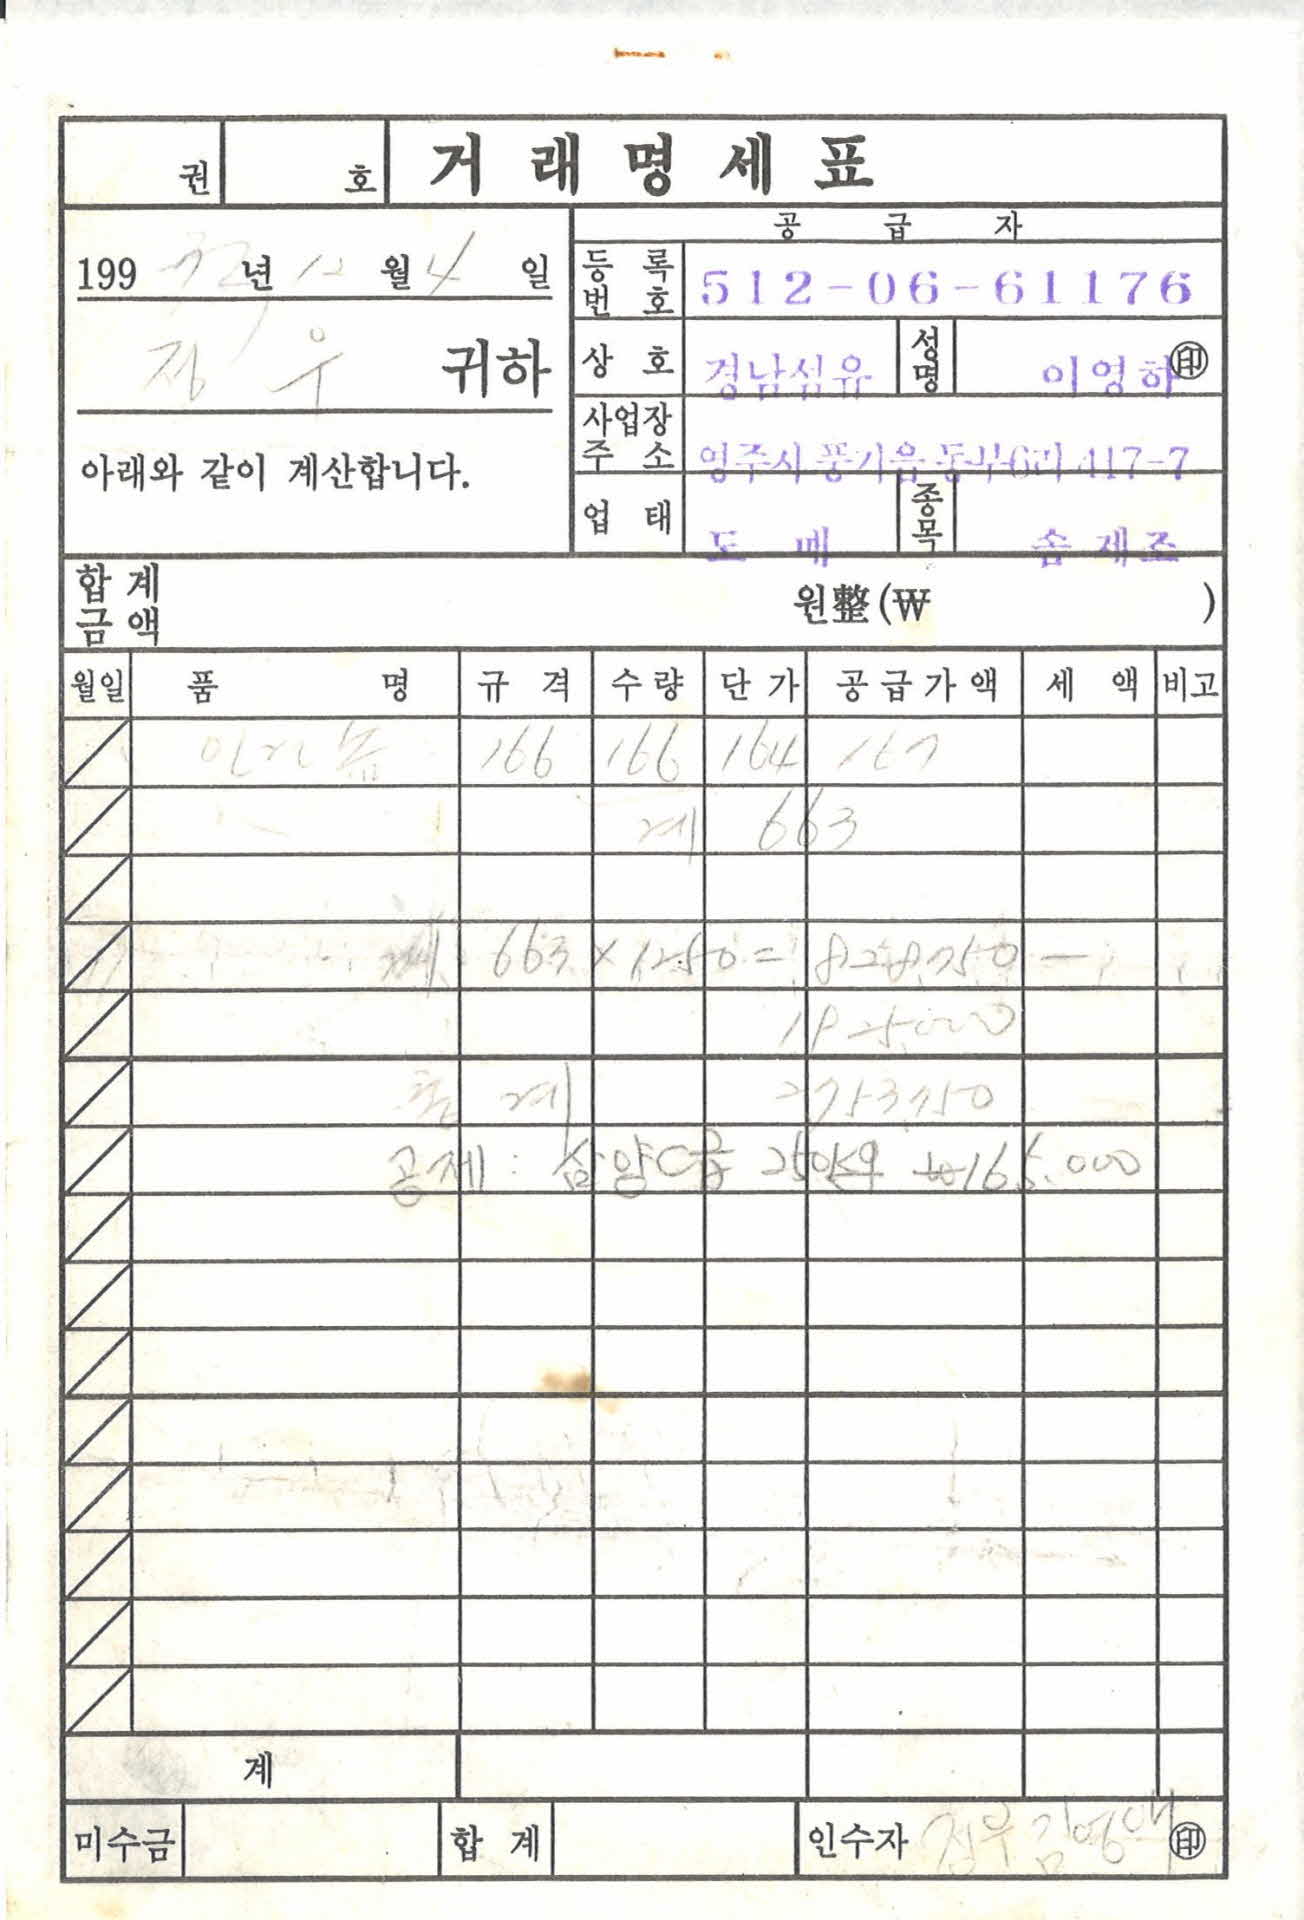 권 호 거래명세표
공급자
199 년 12 월 4 일
등록번호 512-06-61176
정우 귀하
상호 경남섬유 성명 이영하 ㊞
사업장주소 영주시 풍기읍 동부6리 417-7
아래와 같이 계산합니다.
업태 도매 종목 솜제조
합계금액 원整(₩ )
월일 품명 규격 수량 단가 공급가액 세액 비고
166 166 164 167
계 663
계 663 × 1250 = 828750 —
1925000
총계 2753750
공제: 삼양C급 ₩165.000
계
미수금 합계 인수자 정우 김영애 ㊞